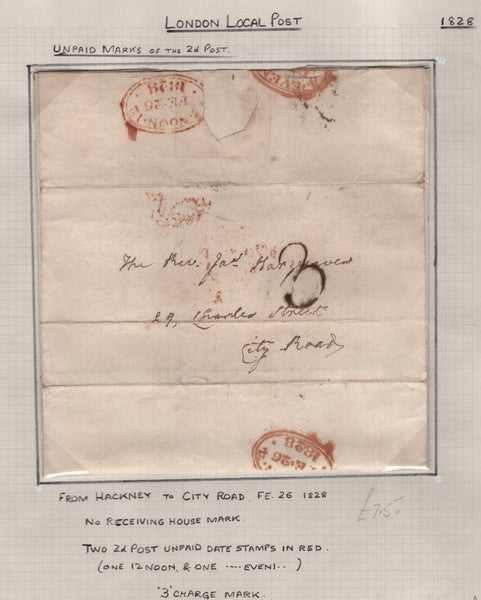 LONDON LOCAL POST
1828
UNPAID MARKS OF THE 2d POST.
NOON
FE·26
1828
EVEN
The Rev. Jas. Hargreaves
3
29, Charles Street
City Road
FE·26
1828
FROM HACKNEY TO CITY ROAD. FE. 26 1828
£7.50
NO RECEIVING HOUSE MARK.
TWO 2d POST UNPAID DATE STAMPS IN RED.
(ONE 12 NOON, & ONE ---- EVENI.. )
'3' CHARGE MARK.